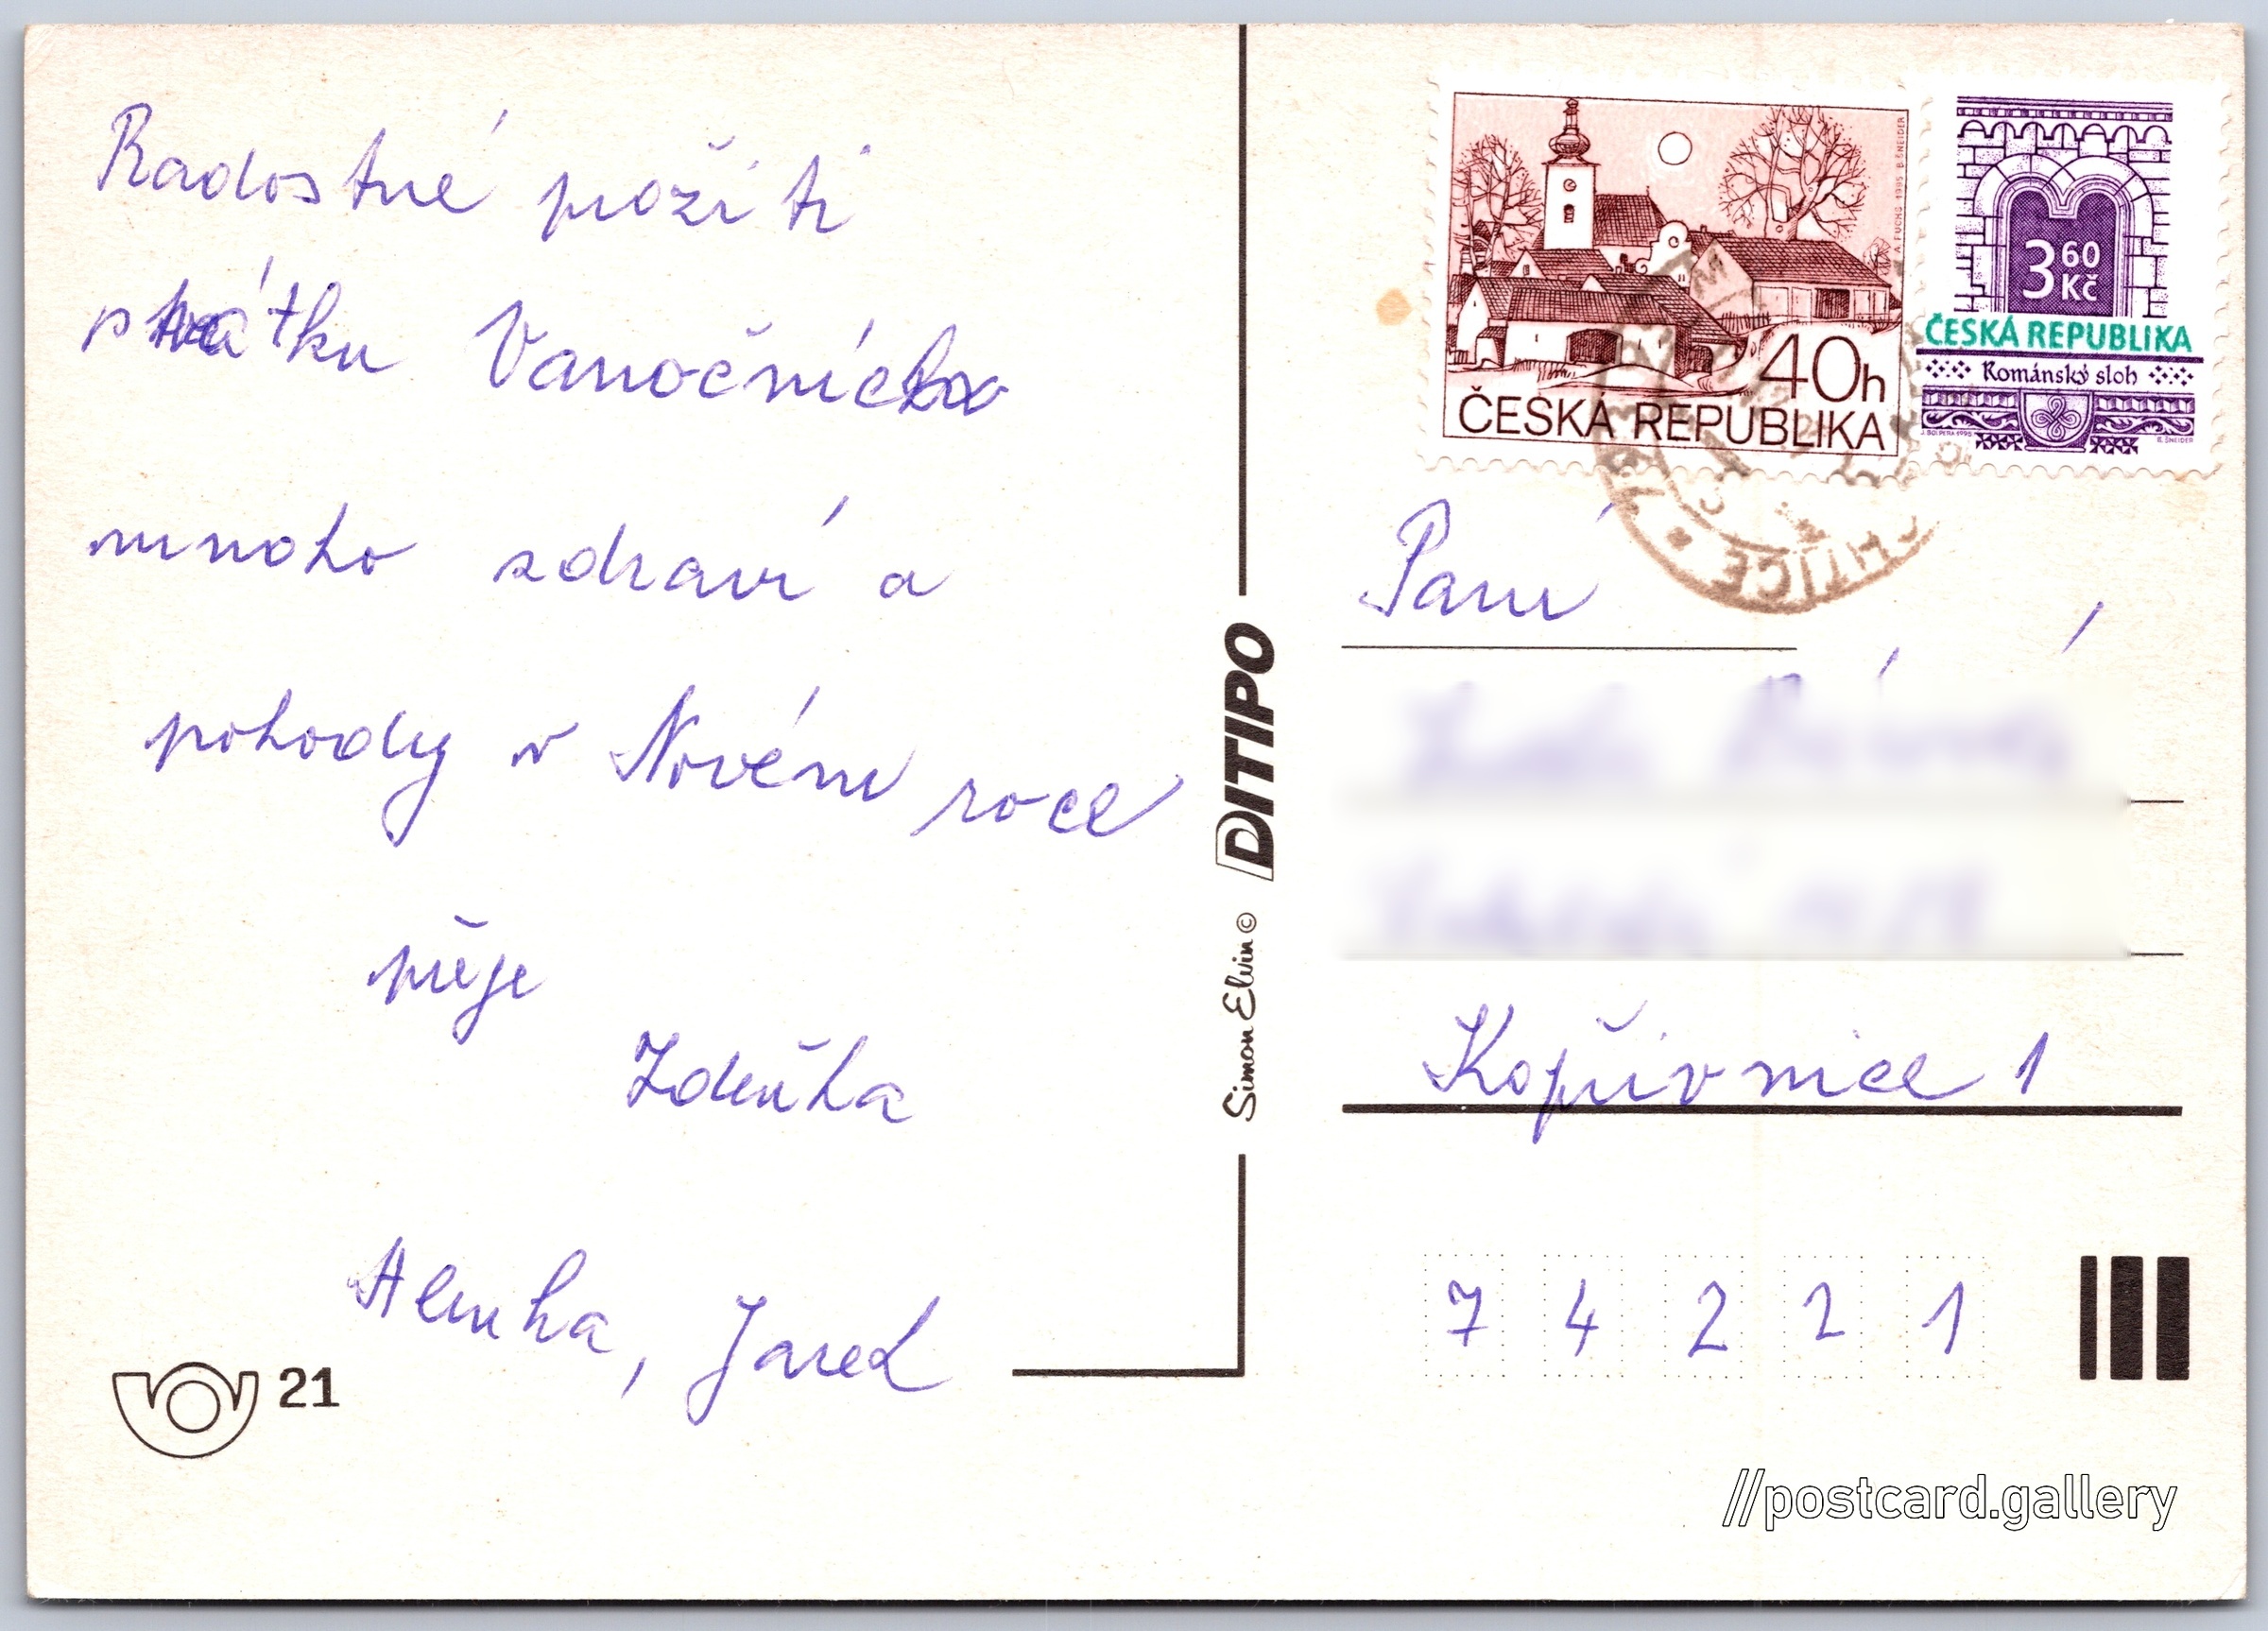 Radostné prožití
svátku Vánočních
mnoho zdraví a
pohody v Novém roce
přeje
Zdeňka
Alenka, Jarek
21
DITIPO
Simon Elvin ©
40h
ČESKÁ REPUBLIKA
A. FUCHS 1995 B. ŠNEIDER
3 60 Kč
ČESKÁ REPUBLIKA
Románský sloh
B. ŠNEIDER
Paní
Kopřivnice 1
7 4 2 2 1
//postcard.gallery